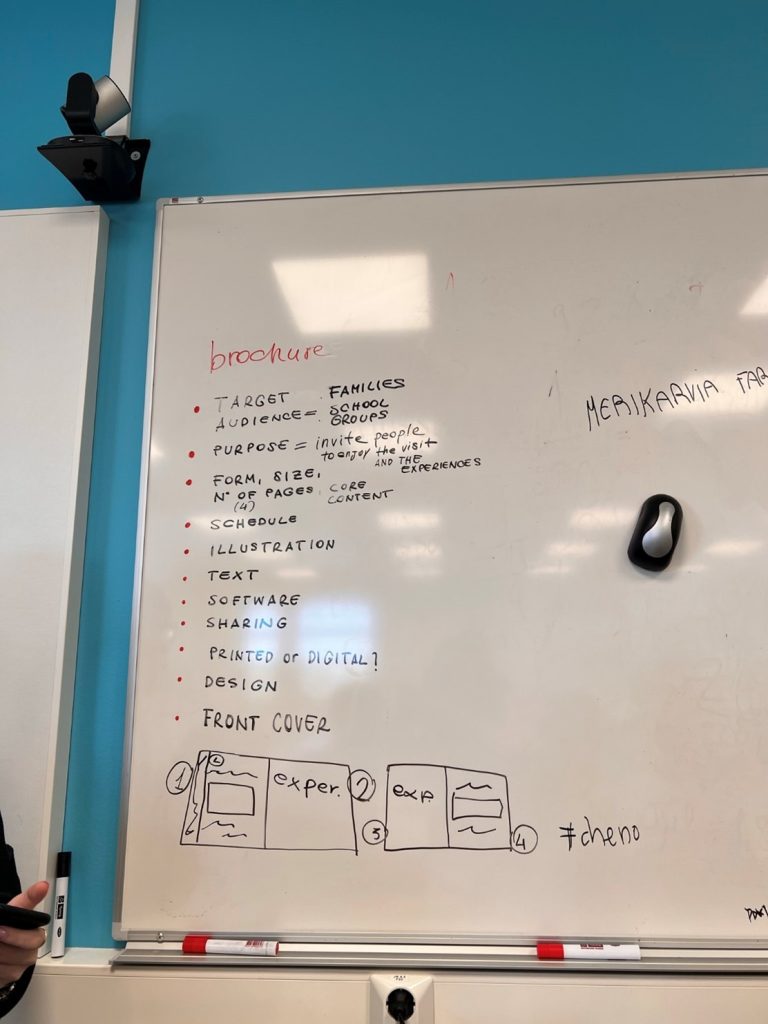 brochure
TARGET FAMILIES
AUDIENCE= SCHOOL
GROUPS
PURPOSE = invite people
to enjoy the visit
AND THE
EXPERIENCES
FORM, SIZE,
N° OF PAGES, CORE
(4) CONTENT
SCHEDULE
ILLUSTRATION
TEXT
SOFTWARE
SHARING
PRINTED or DIGITAL?
DESIGN
FRONT COVER
1 exper. 2
3 exp. 4
#cheno
MERIKARVIA FAR